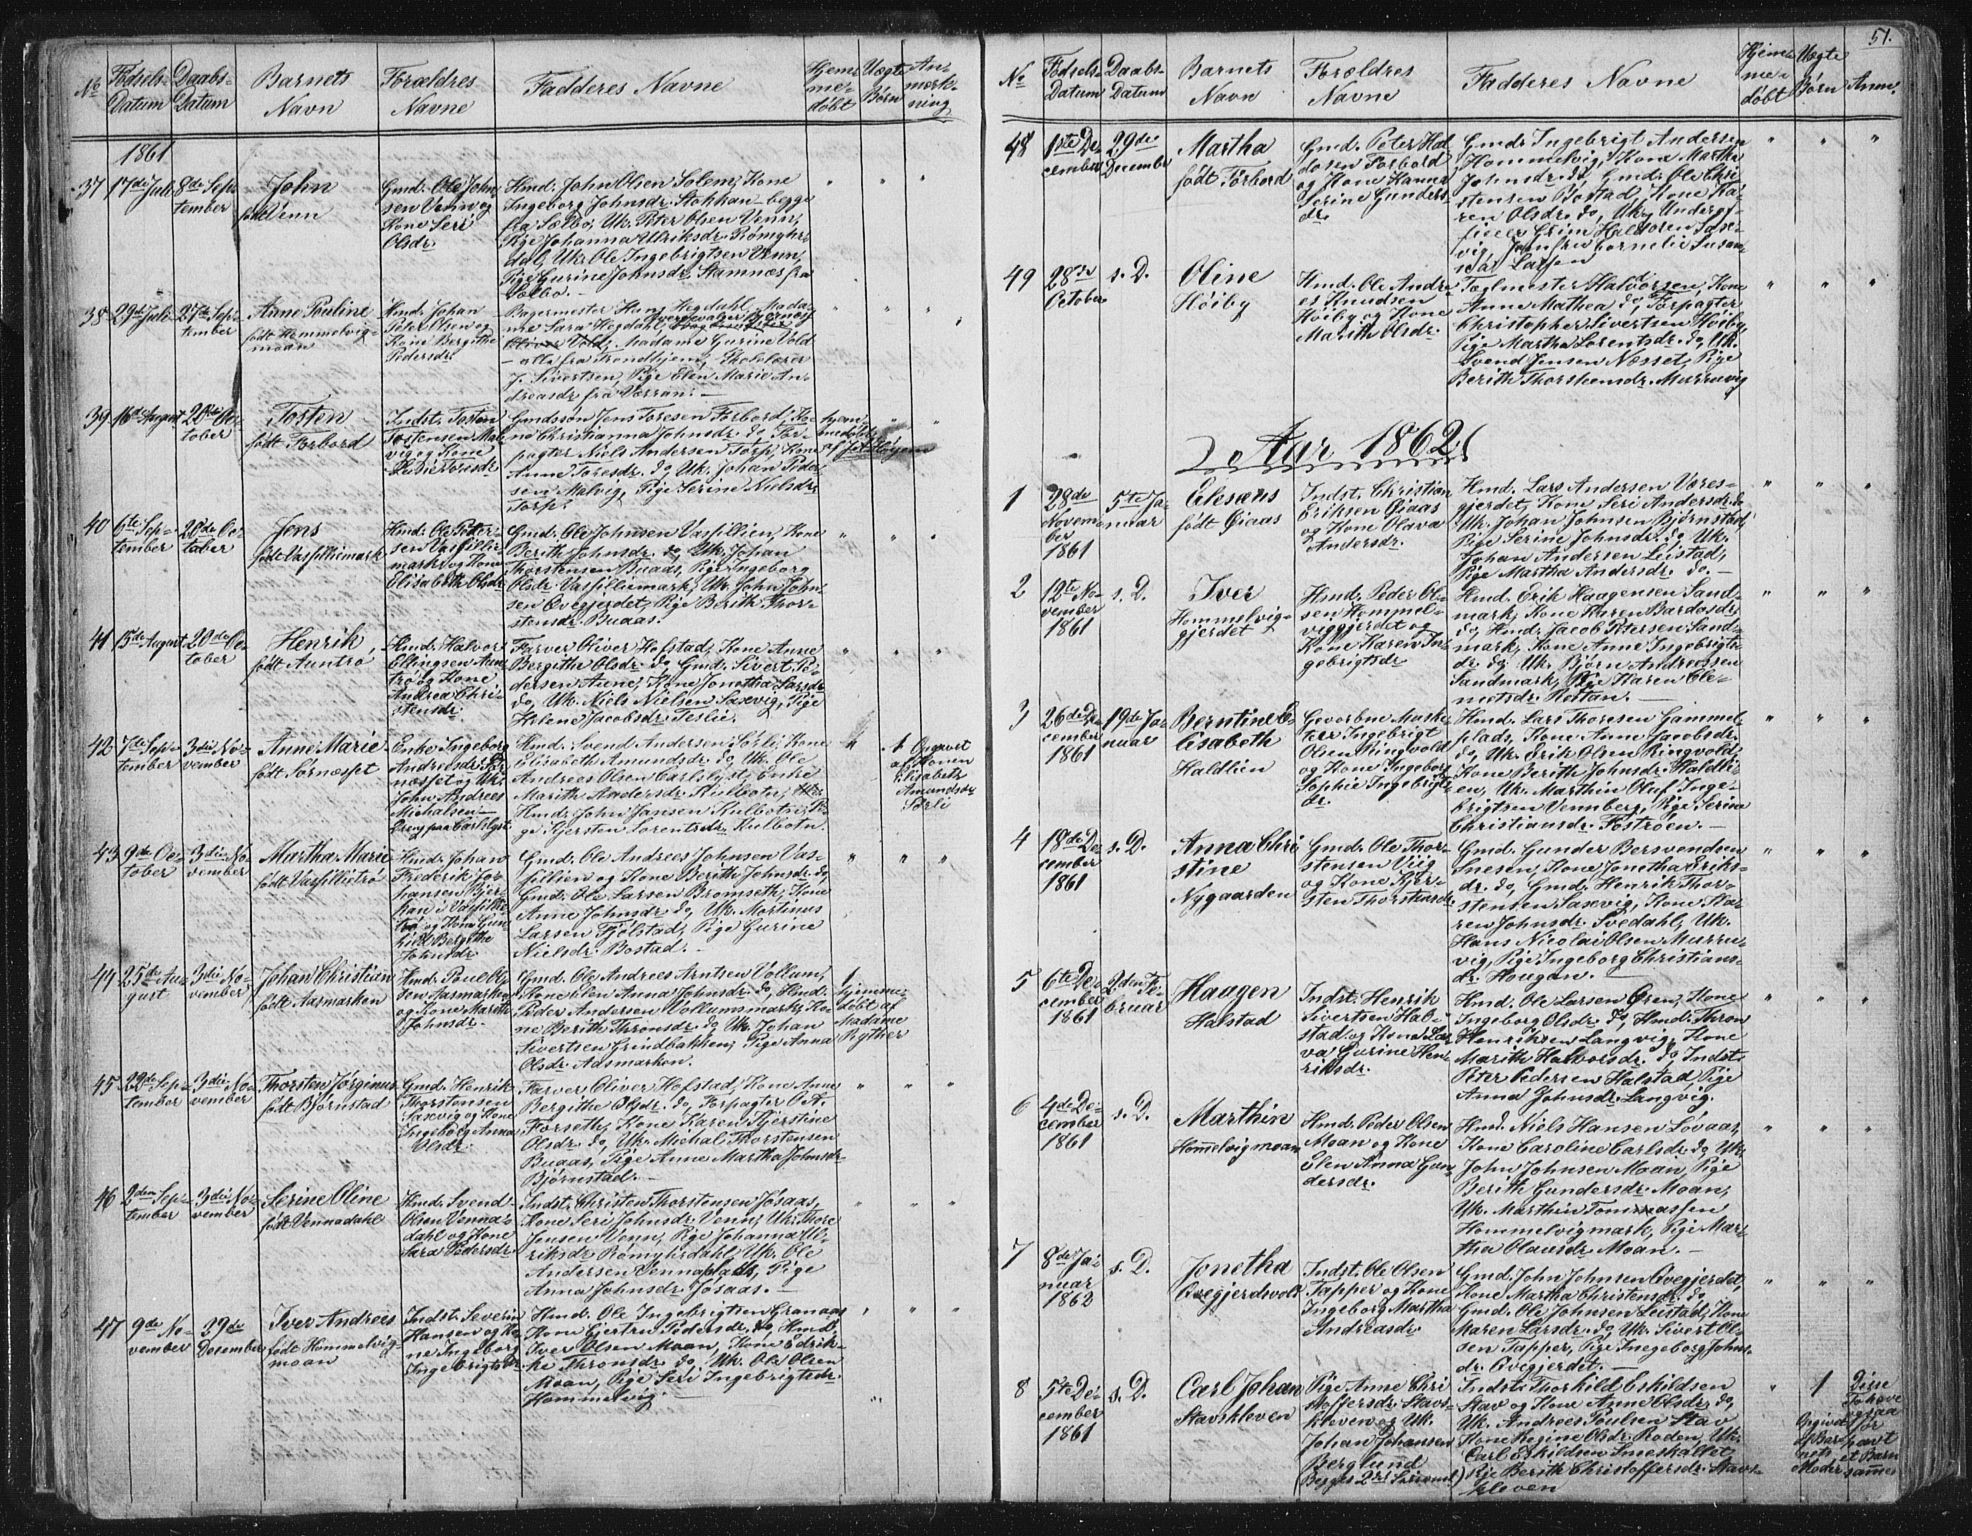 51.
No
Fødsels-
Datum
Daabs-
Datum
Barnets
Navn
Forældres
Navne
Fadderes Navne
Hjem-
me-
døbt
Uægte
Børn
An-
merk-
ning
1861
37
17de Juli
8de Sep-
tember
John
født Venn
Gmd. Ole John-
sen Venn og
Kone Seri
Olsdr.
Hmd. John Olsen Solem, Kone
Ingeborg Johnsdr. Stokkan begge
fra Sælbo, Uk. Peter Olsen Venn,
Pige Johanna Ulriksdr. Rømyhr-
dal, Uk. Ole Ingebrigtsen Venn,
Pige Gurine Johnsdr. Stamnæs fra
Sælbo.
38
29de Juli
27de Sep-
tember
Anne Pouline
født Hommelvig-
moan
Hmd. Johan
Peter Olsen og
Kone Bergithe
Pedersdr.
Bagermester Hans Hegdahl, Mada-
me Sara Hegdahl,
Vold, Madame Gurine Vold
alle fra Trondhjem, Skolelærer
J. Sivertsen, Pige Elen Marie An-
dreasdr. fra Værran.
39
16de August
20de Oc-
tober
Tosten
født Forbord
Indst. Tosten
Tostensen Mal-
vig og Kone
Toresdr.
Gmdssøn Jens Toresen Forbord, Ko-
ne Christianna Johnsdr. do, For-
pagter Niels Andersen Torp, Kone
Anne Toresdr. do, Uk. Johan Peder-
sen Malvig, Pige Serine Nielsdr.
Torp.
Hjem-
medøbt
af
40
6te Sep-
tember
20de Oc-
tober
Jens
født Vasfilliemark
Hmd. Ole Peter-
sen Vasfillie-
mark og Kone
Elisabeth Olsdr.
Gmd. Ole Johnsen Vasfillien, Kone
Berith Johnsdr. do, Uk. Johan
Thorstensen Buaas, Pige Ingeborg
Olsdr. Vasfilliemark, Uk. John John-
sen Qvegjerdet, Pige Berith Thor-
stensdr. Buaas.
41
15de August
20de Oc-
tober
Henrik
født Auntrø
Hmd. Halvor
Ellingsen Aun-
trø og Kone
Andrea Chri-
stensdr.
Farver Oliver Hofstad, Kone Anne
Bergithe Olsdr. do, Gmd. Sivert Pe-
dersen Aune, Kone Jonetha Larsdr.
do, Uk. Niels Nielsen Saxevig, Pige
Helene Jacobsdr. Teslie.
42
7de Sep-
tember
3die No-
vember
Anne Marie
født Sørnæsset
Enke Ingeborg
Andreasdr. Sør-
næsset og Uk.
John Andreas
Michalsen
Dreng paa Carlslyst
Hmd. Svend Andersen Sørli, Kone
Elisabeth Amundsdr. do, Uk. Ole
Andreas Olsen Carlslyst, Enke
Marith Andersdr. Kulbotn,
Hmd. John Jansen Kulbotn, Pi-
ge Kjersten Lorentsdr. Kulbotn.
1
Opgivet
af Konen
Elisabeth
Amundsdr.
Sørli
43
9de Oc-
tober
3die No-
vember
Martha Marie
født Vasfillietrø
Hmd. Johan
Frederik Jo-
hansen Bjer-
kan i Vasfillie-
trø og Kone Gun-
hild Bergithe
Johnsdr.
Gmd. Ole Andreas Johnsen Vas-
fillien og Kone Berith Johnsdr. do,
Gmd. Ole Larsen Bromseth, Kone
Anne Johnsdr. do, Uk. Mortinus
Larsen Fjølstad, Pige Gurine
Nielsdr. Bostad.
44
25de Au-
gust
3die No-
vember
Johan Christian
født Aasmarken
Hmd. Poul Ol-
sen Aasmarken
og Kone Marith
Johnsdr.
Gmd. Ole Andreas Arntsen Vollum,
Kone Elen Anna Johnsdr. do, Hmd.
Peder Andersen Vollumsmark, Ko-
ne Berith Thronsdr. do, Uk. Johan
Sivertsen Grindbakken, Pige Anna
Olsdr. Aasmarken.
Hjemme-
døbt af
Madame
Rytter
45
22de Sep-
tember
3die No-
vember
Thorsten Jørginus
født Bjørnstad
Gmd. Henrik
Thorstensen
Saxevig og Kone
Ingeborg Anna
Olsdr.
Farver Oliver Hofstad, Kone Anne
Bergithe Olsdr. do, Forpagter O. A.
Forseth, Kone Karen Kjerstine
Olsdr. do, Uk. Michal Thorstensen
Buaas, Pige Anne Martha Johnsdr.
Bjørnstad.
46
2den Sep-
tember
3die No-
vember
Serine Oline
født Vennadahl
Hmd. Svend
Olsen Venna-
dahl og Kone
Sara Pedersdr.
Indst. Christen Thorstensen Jøsaas,
Kone Seri Johnsdr. Venn, Uk. Thore
Jensen Venn, Pige Johanna Ul-
riksdr. Rømyhrdahl, Uk. Ole
Andersen Vennaplads, Pige
Anna Johnsdr. Jøsaas.
47
9de No-
vember
29de
December
Iver Andreas
født Hommelvig-
moan
Indst. Severin
Hansen og Ko-
ne Ingeborg
Ingebrigtsdr.
Hmd. Ole Ingebrigtsen Granaas,
Kone Gjertru Pedersdr. do, Hmd.
Iver Olsen Moan, Kone Edrik-
ke Thronsdr. do, Uk. Ole Olsen
Moan, Pige Seri Ingebrigtsdr.
Hommelvig.
No
Fødsels-
Datum
Daabs-
Datum
Barnets
Navn
Forældres
Navne
Fadderes Navne
Hjem-
me-
døbt
Uægte
Børn
Anm.
48
1ste De-
cember
29de
December
Martha
født Forbord
Gmd. Peter Hal-
dosen Forbord
og Kone Hanna
Serine Gunders-
dr.
Gmd. Ingebrigt Andersen
Hommelvig, Kone Martha
Johnsdr. do, Gmd. Ole Chri-
stensen Bostad, Kone Ka-
ren Olsdr. do, Uk. Underof-
ficeer Grim Halvorsen Saxe-
vig, Jomfru Cornelie Susan-
na Larsen
49
28de
October
s. D.
Oline
Høiby
Hmd. Ole Andre-
as Knudsen
Høiby og Kone
Marith Olsdr.
Teglmester Halvorsen, Kone
Anne Mathea do, Forpagter
Christopher Sivertsen Høiby,
Pige Martha Lorentsdr. do, Uk.
Svend Jensen Næsset, Pige
Berith Thorsteensdr. Muruvig
Aar 1862
1
28de
Novem-
ber
1861
5te Ja-
nuar
Elesæus
født Giaas
Indst. Christian
Eriksen Giaas
og Kone Olava
Andersdr.
Hmd. Lars Andersen Vores-
gjerdet, Kone Seri Andersdr. do,
Uk. Johan Johnsen Bjørnstad,
Pige Serine Johnsdr. do, Uk.
Johan Andersen Leistad,
Pige Martha Andersdr. do.
2
12te No-
vember
1861
s. D.
Iver
Hommelvig-
gjerdet
Hmd. Peder Ol-
sen Hommel-
viggjerdet og
Kone Karen In-
gebrigtsdr.
Hmd. Erik Haagensen Sand-
mark, Kone Karen Bardosdr.
do, Hmd. Jacob Petersen Sand-
mark, Kone Anne Ingebrigts-
dr. do, Uk. Bjørn Andreassen
Sandmark, Pige Karen Cle-
metsdr. Rottan.
3
26de De-
cember
1861
19de Ja-
nuar
Berntine E-
lisabeth
Haldlien
Gevorbne Muske-
teer Ingebrigt
Olsen Ringvold
og Kone Ingeborg
Sophie Ingebrigts-
dr.
Hmd. Lars Thoresen Gammel-
plads, Kone Anne Jacobsdr.
do, Uk. Erik Olsen Ringvold,
Kone Berith Johnsdr. Haldli-
en, Uk. Marthin Oluf Inge-
brigtsen Vennberg, Pige Serine
Christiansdr. Fostrøen.
4
18de De-
cember
1861
s. D.
Anna Chri-
stine
Nygaarden
Gmd. Ole Thor-
stensen Viig
og Kone Kjer-
sten Thorstensdr.
Gmd. Gunder Bersvendsen
Snesen, Kone Jonetha Eriks-
dr. do, Gmd. Henrik Thor-
stensen Saxevig, Kone Ka-
ren Johnsdr. Svedahl, Uk.
Hans Nicolai Olsen Muruu-
vig, Pige Ingeborg Christians-
dr. Hougan.
5
6te De-
cember
1861
2den Fe-
bruar
Haagen
Halstad
Indst. Henrik
Sivertsen Hal-
stad og Kone Lar-
va Gurine Hen-
riksdr.
Hmd. Ole Larsen Øren, Kone
Ingeborg Olsdr. do, Hmd. Thron
Henriksen Langvig, Kone
Marith Halvorsdr. do, Indst.
Peter Pedersen Halstad, Pige
Anna Johnsdr. Langvig.
6
4de De-
cember
1861
s. D.
Marthin
Hommelvigmoan
Hmd. Peder Olsen
Moan og Kone
Elen Anna Gun-
dersdr.
Hmd. Niels Hansen Løvaas,
Kone Caroline Carlsdr. do, Uk.
John Johnsen Moan, Pige
Berith Gundersdr. Moan,
Uk. Marthin Tommassen
Hommelvigmark, Pige Mar-
tha Olausdr. Moan.
7
8de Ja-
nuar
1862
s. D.
Jonetha
Qvegjerdsvold
Indst. Ole Olsen
Tapper og Kone
Ingeborg Martha
Andreasdr.
Gmd. John Johnsen Qvegjerdet,
Kone Martha Christensdr. do,
Gmd. Ole Johnsen Leistad, Kone
Maren Larsdr. do, Uk. Sivert Ol-
sen Tapper, Pige Ingeborg Johns-
dr. Qvegjerdet.
8
5te De-
cember
1861
s. D.
Carl Johan
Stavskleven
Pige Anne Chri-
stoffersdr. Stavs-
kleven og Uk.
Johan Johansen
Berglund
(Begges 2det Leierm.)
Indst. Thorkild Eskildsen
Stav og Kone Anne Olsdr. do,
Uk. Andreas Poulsen Stav,
Kone Regine Olsdr. Roden, Uk.
Carl Eskildsen Smeskaltet,
Pige Berith Christoffersdr. Stavs-
kleven
1
Opgivet
af Bar-
nets
Moder
Disse
Forældre
ogsaa
før
havt
et Barn
sammen